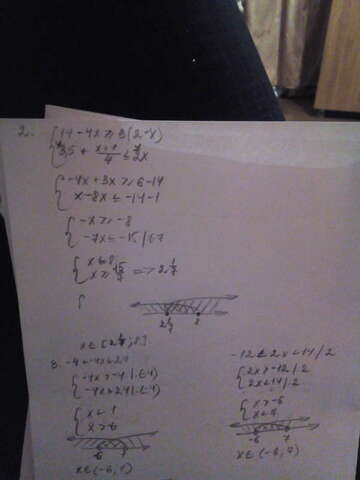 2. { 14 - 4x ≥ 3(2-x)
3,5 + (x+1)/4 ≤ 2x
{ -4x + 3x ≥ 6 - 14
x - 8x ≤ -14 - 1
{ -x ≥ -8
-7x ≤ -15 | :7
{ x ≤ 8
x ≥ 15/7 => 2 1/7
{
2 1/7 8
x ∈ [2 1/7; 8]
3. -4 < -4x < 24
{ -4x > -4 | :(-4)
-4x < 24 | :(-4)
{ x < 1
x > -6
-6 1
x ∈ (-6, 1)
-12 < 2x < 14 / 2
{ 2x > -12 / 2
2x < 14 / 2
{ x > -6
x < 7
-6 7
x ∈ (-6, 7)